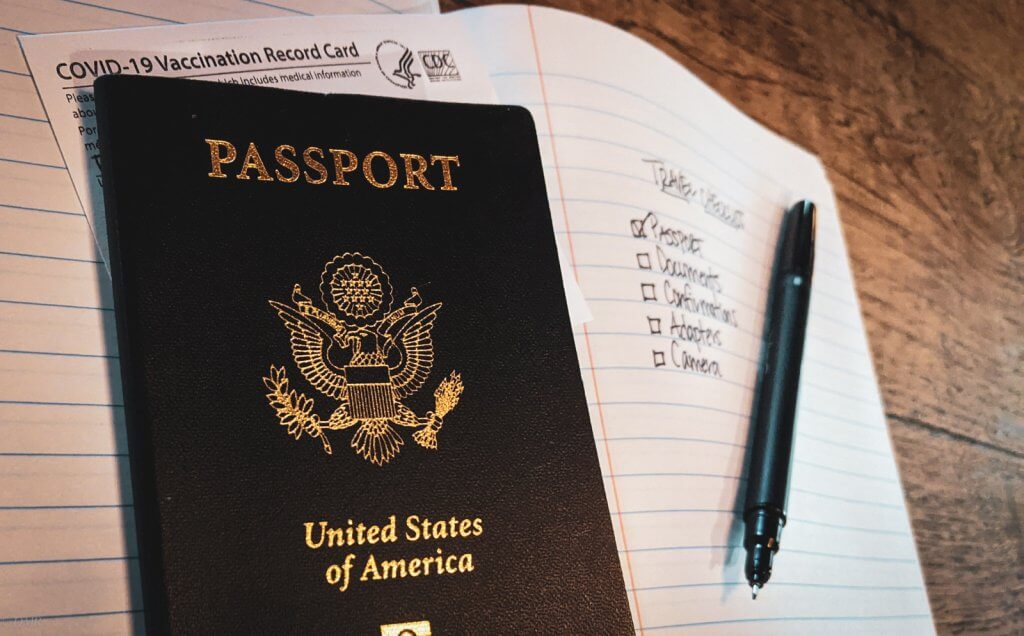 COVID-19 Vaccination Record Card
includes medical information
CDC
PASSPORT
United States
of America
TRAVEL CHECKLIST
PASSPORT
Documents
Confirmations
Adapters
Camera